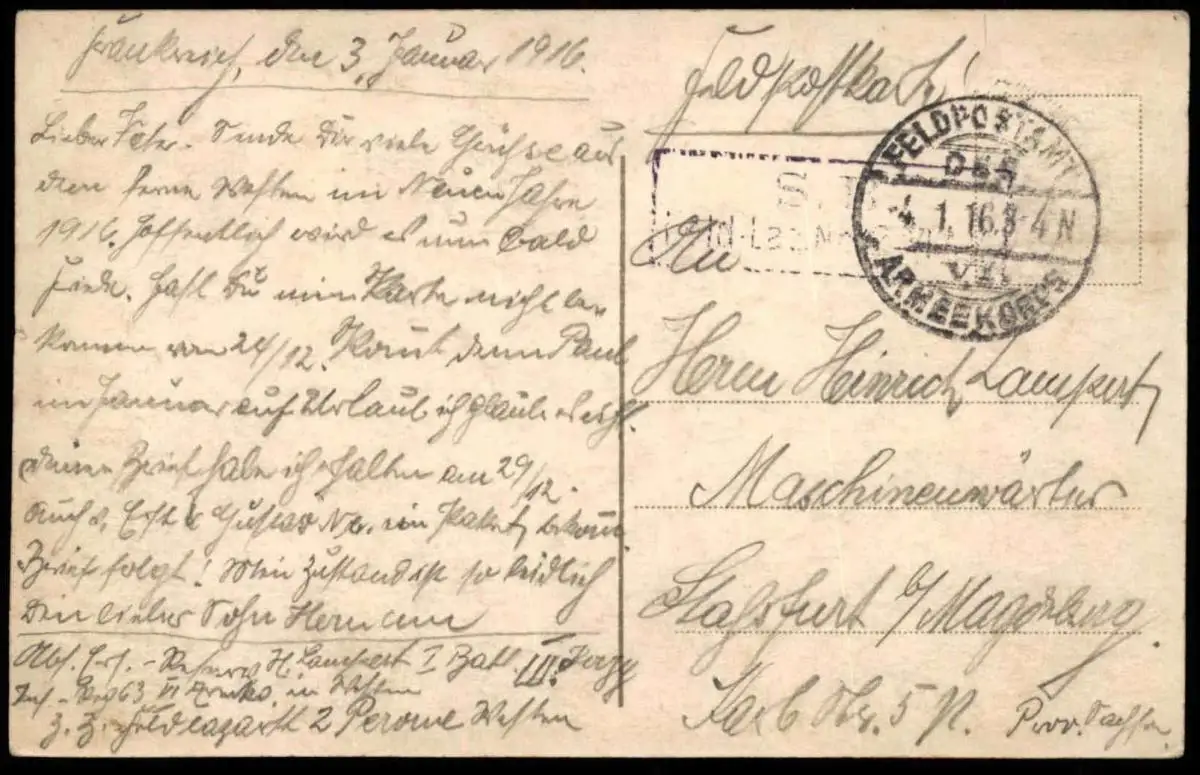 Frankreich, den 3. Januar 1916.
Lieber Vater. Sende Dir viele Grüsse aus
dem ferne Westen im Neuen Jahre
1916. Hoffentlich wird es nun bald
Friede. Hast Du mein Karte nicht be-
kommen von 24/12. Kommt denn Paul
im Januar auf Urlaub ich glaube es nicht.
Deinen Brief habe ich erhalten am 29/12.
Auch v. Gustav ein Paket bekom.
Brief folgt! Mein Zustand ist so leidlich
Dein lieber Sohn Hermann
Abs. Ers.-Reserv. H. Lampert I Batl. III.
Inf.-Reg 63 VI in Westen
z. Z. Feldlazarett 2 Perone Westen
Feldpostkarte!
FELDPOSTAMT
DES
4. 1. 16. 3-4 N
VI.
ARMEEKORPS
S. B.
An
Herrn Heinrich Lampert
Maschinenwärter
Staßfurt b/ Magdeburg.
5 Prov. Sachsen